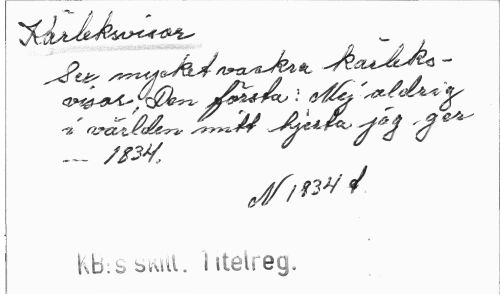 Kärleksvisor
Sex mycket vackra kärleks-
visor, Den första: Nej aldrig
i världen mitt hjerta jag ger
— 1834.
N 1834 d.
KB:s skill. Titelreg.